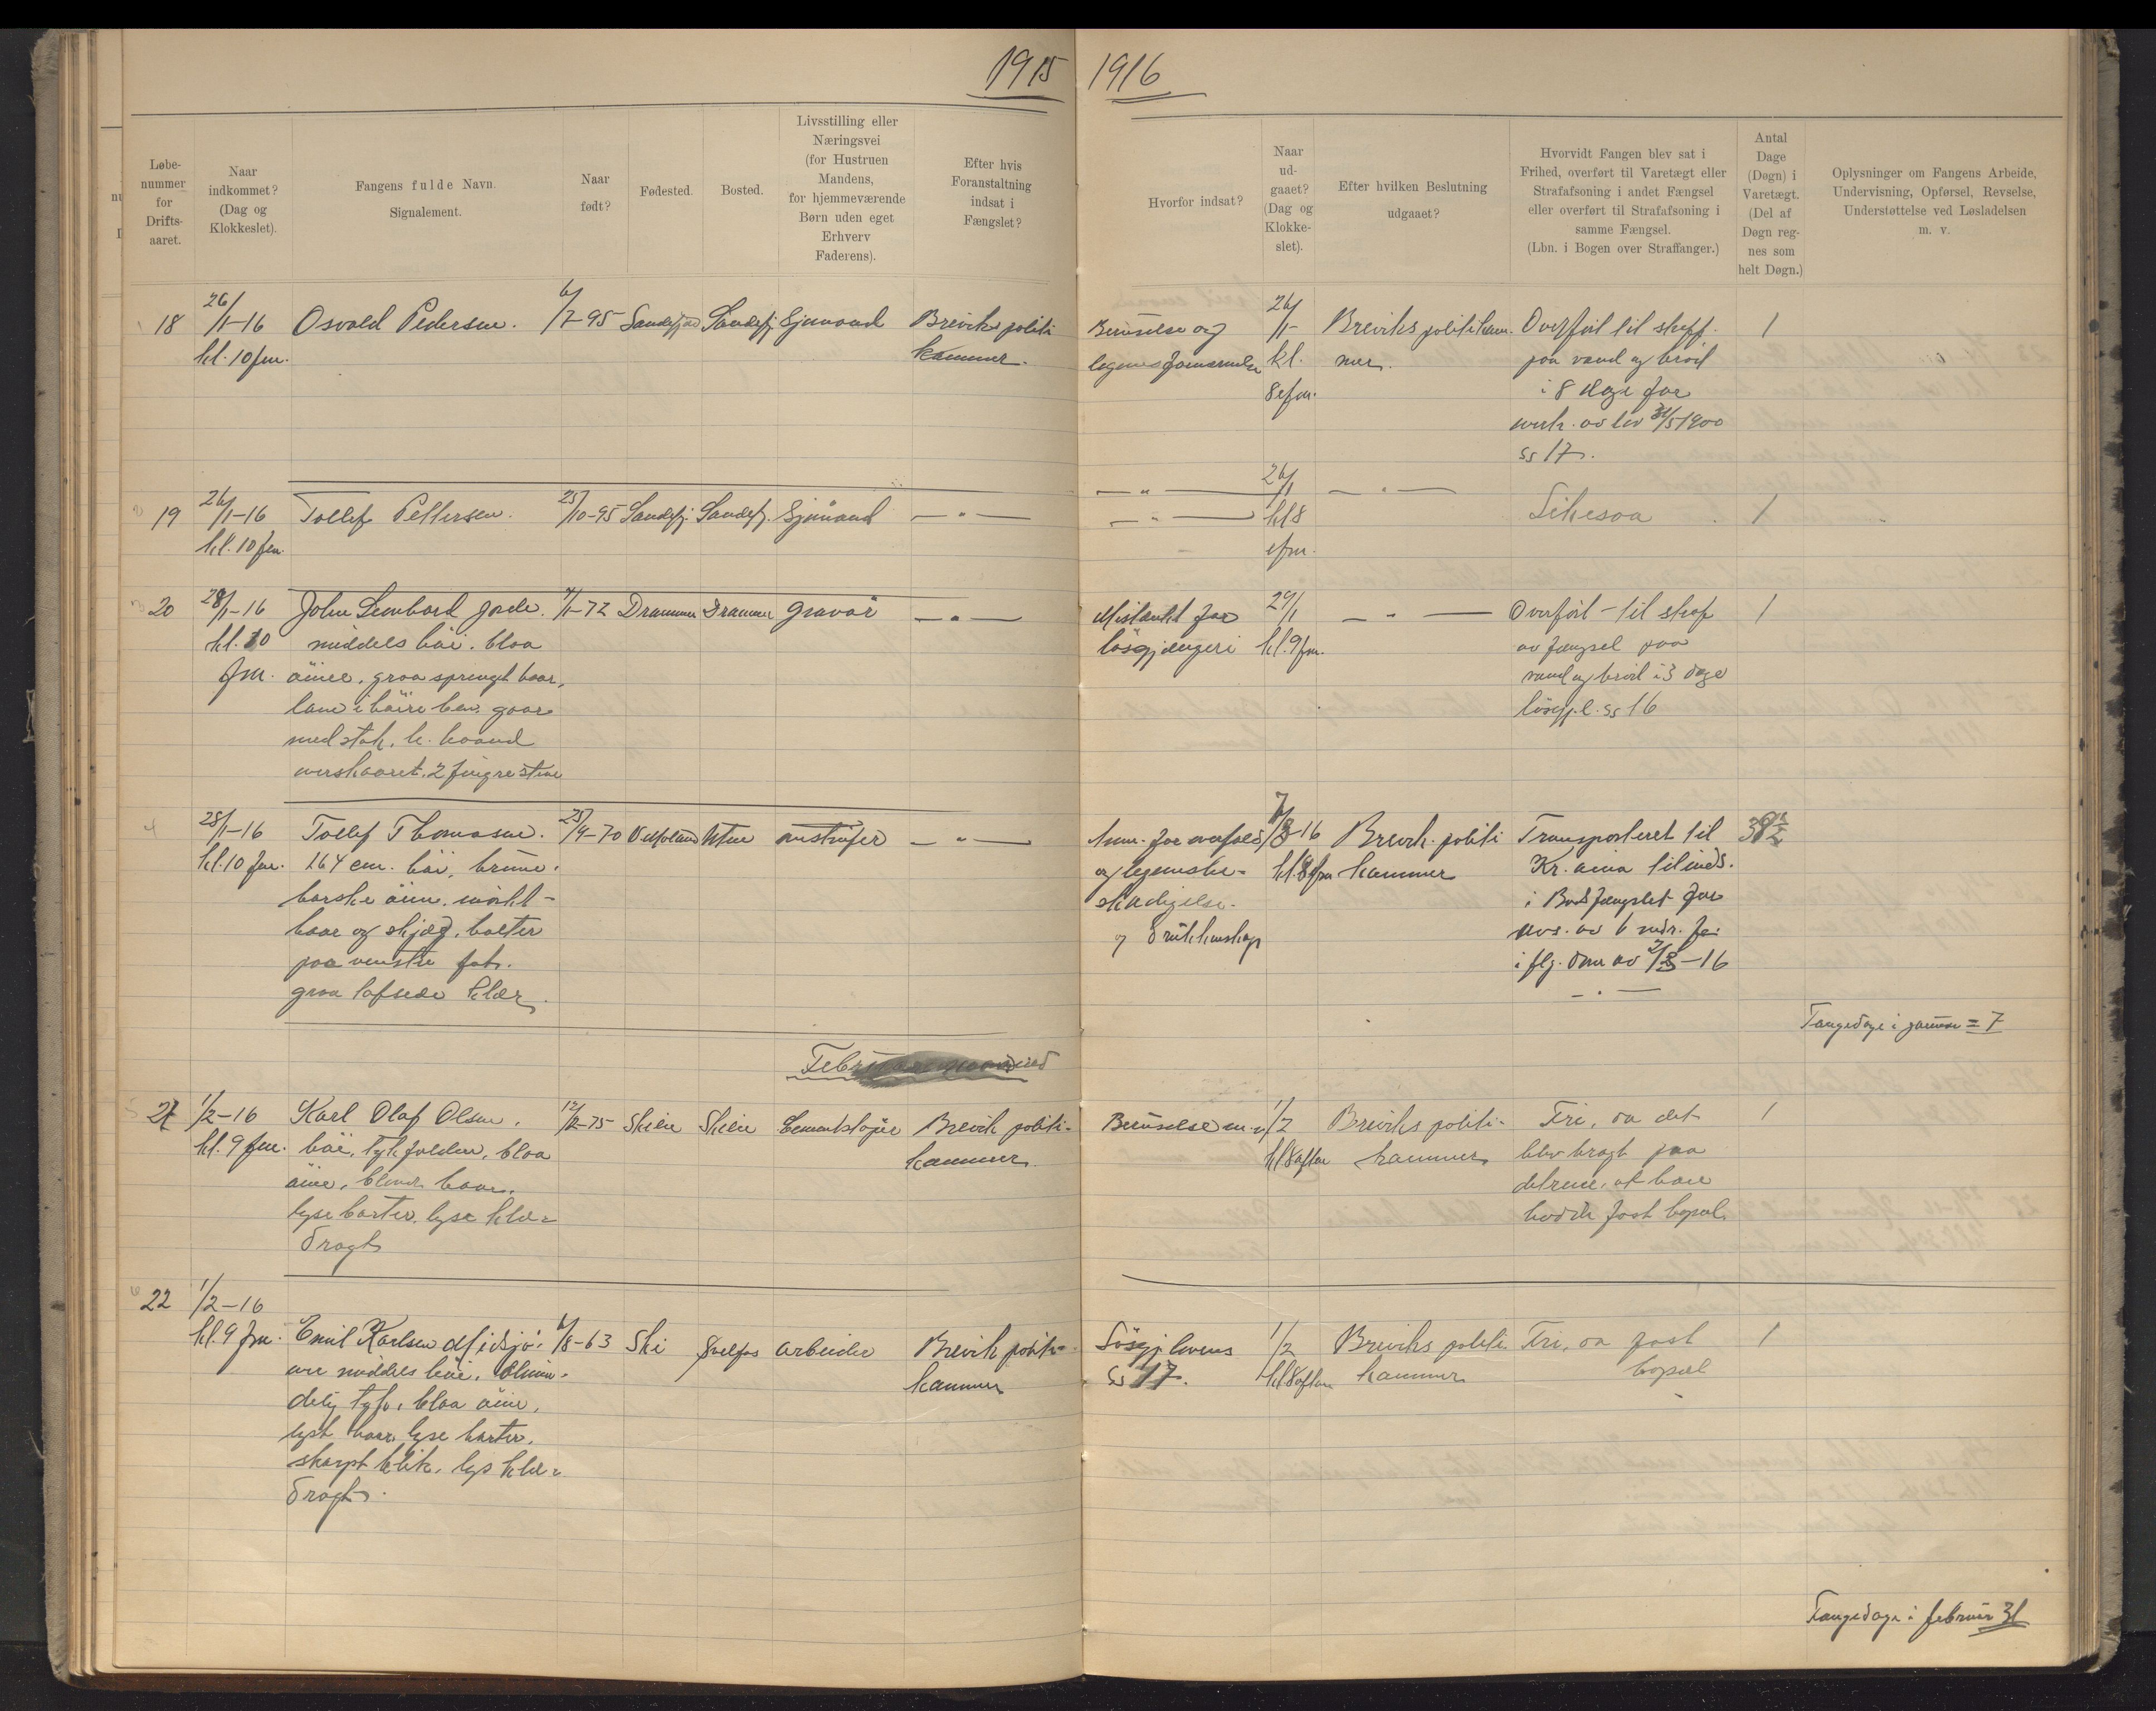 1915
1916
Løbe-
nummer
for
Drifts-
aaret.
Naar
indkommet?
(Dag og
Klokkeslet).
Fangens fulde Navn.
Signalement.
Naar
født?
Fødested.
Bosted.
Livsstilling eller
Næringsvei
(for Hustruen
Mandens,
for hjemmeværende
Børn uden eget
Erhverv
Faderens).
Efter hvis
Foranstaltning
indsat i
Fængslet?
Hvorfor indsat?
Naar
ud-
gaaet?
(Dag og
Klokke-
slet).
Efter hvilken Beslutning
udgaaet?
Hvorvidt Fangen blev sat i
Frihed, overført til Varetægt eller
Strafafsoning i andet Fængsel
eller overført til Strafafsoning i
samme Fængsel.
(Lbn. i Bogen over Straffanger.)
Antal
Dage
(Døgn) i
Varetægt.
(Del af
Døgn reg-
nes som
helt Døgn.)
Oplysninger om Fangens Arbeide,
Undervisning, Opførsel, Revselse,
Understøttelse ved Løsladelsen
m. v.
18 26/1-16 Osvald Pedersen. 6/7-95 Sandefjord Sandefj. Sjømand Breviks politi
kl. 10 fm. kammer.
Beruselse og 26/1- Breviks politikam- Overført til straff. 1
legemsfornærmelse kl. mer. paa vand og brød
8 efm. i 8 dage for
overtr. av lov 31/5 1900
§§ 17.
19 26/1-16 Tollef Pettersen. 25/10-95 Sandefj. Sandefj. Sjømand — " —
kl. 10 fm.
— " — 26/1 — " —
— " — kl 8 Likesaa 1
efm.
20 28/1-16 John Lembard Jode. 4/1-72 Drammen Drammen Gravør — " —
kl. 10 middels høi. blaa
fm. øine, graasprengt haar,
lam i høire ben. gaar
med stok. h. haand
overskaaret. 2 fingre stive
Mistænkt for 29/1 — " — Overført - til straf 1
løsgjængeri kl. 9 fm. av fængsel paa
vand og brød i 3 dage
løsgj. l. §§ 16
28/1-16 Tollef Thomasen. 25/9-70 — " —
kl. 10 fm. 164 cm. høi, brune.
barske øine. mørkt-
haar og skjæg. halter
paa venstre fot.
graa klær.
Anm. for overfald 7/3-16 Brevik. politi Transporteret til
og legemsbe- kammer Kr.ania til inds.
skadigelse. i Bodsfængslet for
og Drukkenskap avs. av 6 mdr. fæ.
i flg. dom av 2/3-16
— " —
Fangedage i januar = 7
Februar maaned
21 1/2-16 Karl Olaf Olsen. 12/2-75 Skien Skien Brevik politi-
kl. 9 fm. høi, tykfalden, blaa kammer.
øine. blond haar.
lyse barter. lyse klæ-
dragt
1/2 Breviks politi- Fri, da det 1
kl 8 aften kammer blev bragt paa
detrene, at have
hadde fast bopæl.
22 1/2-16
kl. 9 fm. Emil Karlsen 6/8-63 Ski arbeider Brevik politi-
middels høi. kammer
delig tyk. blaa øine,
lyst haar. lyse barter.
skarpt blik. lys klæ-
dragt.
Løsgj. lovens 1/2 Breviks politi Fri, da fast 1
§§ 17. kl 8 aften kammer. bopæl
Fangedage i februar 31